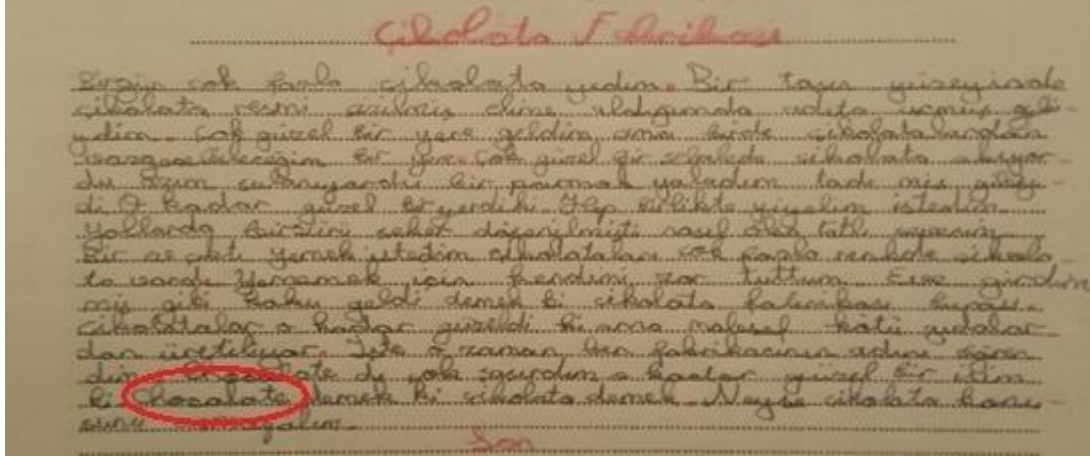 Çikolata Fabrikası
Birgün çok fazla çikolata yedim. Bir taşın yüzeyinde
çikolata resmi çizilmiş elime aldığımda adeta uçmuş gibi
ydim. Çok güzel bir yere geldim ama burda çikolatalardan
bir yere çok güzel bir şelalede çikolata akıyor
du ağzım sulanıyordu bir parmak yaladım tadı mis gibiy
di. O kadar güzel bir yerdiki. Hep birlikte yiyelim istedim.
Yollarda şeker döşenilmişti nasıl tatlı
Bir yemek istedim çikolataları çok fazla renkde çikola
ta vardı. Yememek için kendimi zor tuttum. Eve girdim
mis gibi koku geldi demek ki çikolata
çikolatalar o kadar güzeldi ki ama malesef kötü
dan üretiliyor. İşte o zaman ben fabrikasının adını öğren
dim. Chocolate di çok o kadar güzel bir isim
ki Chocolate demek ki çikolata demek. Neyse çikolata konu
sunu
Son